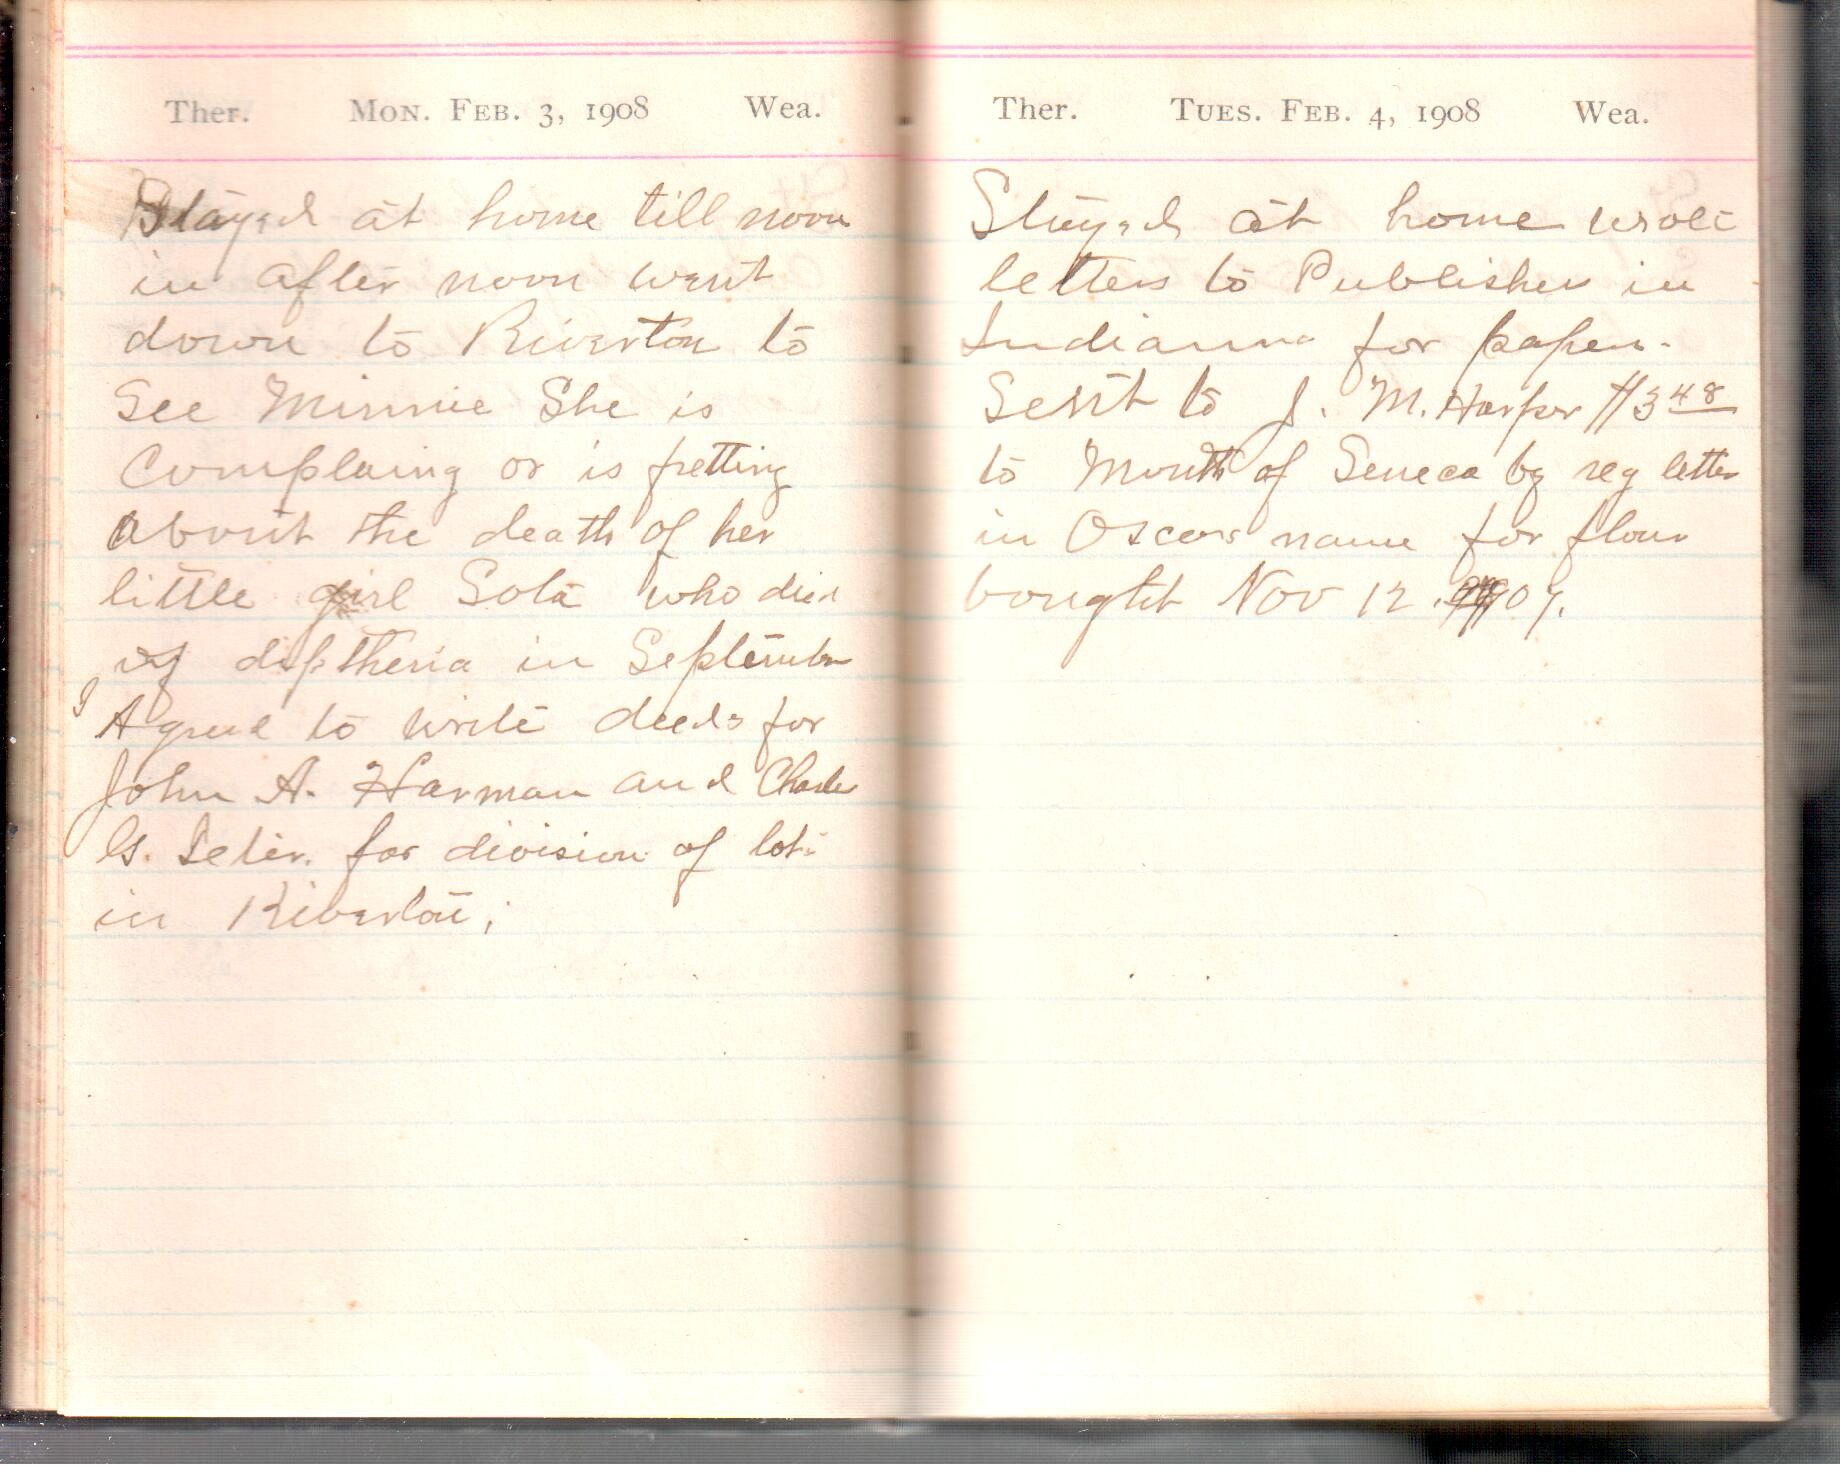 Ther. Mon. Feb. 3, 1908 Wea.
Stayed at home till noon
in after noon went
down to Riverton to
See Minnie She is
Complaing or is fretting
about the death of her
little girl Sola who died
of diptheria in September
I Agreed to write deeds for
John A. Harman and Charles
G. Teter. for division of lot
in Riverton.
Ther. Tues. Feb. 4, 1908 Wea.
Stayed at home wrote
letters to Publisher in
Indianna for papers.
Sent to J. M. Harper $3.48
to Mouth of Seneca by reg letter
in Oscers name for flour
bought Nov 12. 1907.